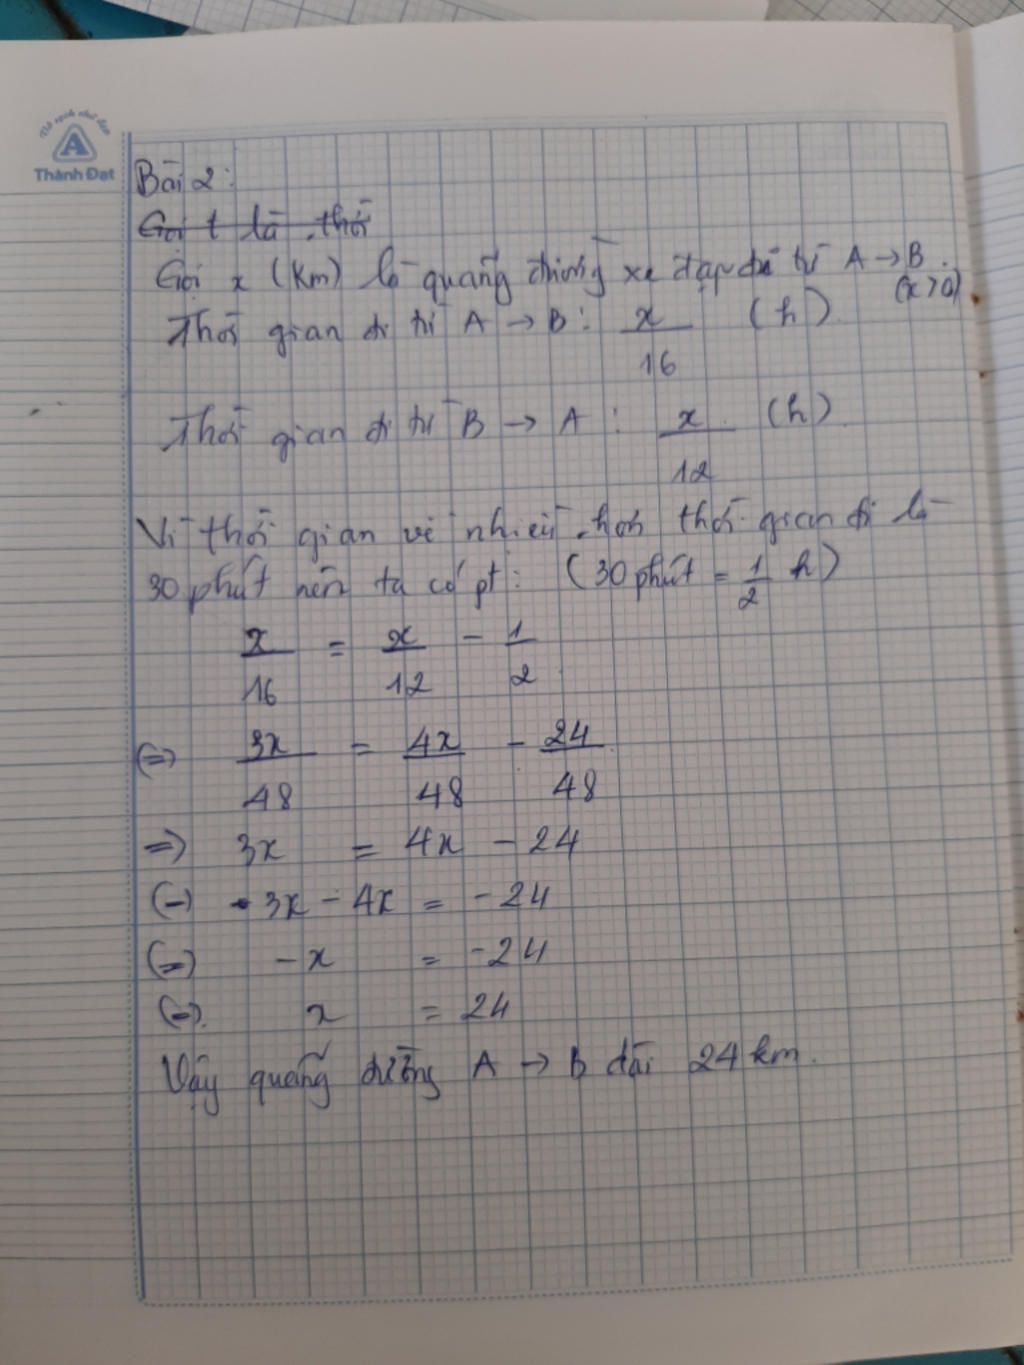 Vở sạch chữ đẹp
A
Thành Đạt
Bài 2:
Gọi t là thời
Gọi x (km) là quãng đường xe đạp đi từ A → B.
(x > 0)
Thời gian đi từ A → B: x/16 (h)
Thời gian đi từ B → A : x/12 (h)
Vì thời gian về nhiều hơn thời gian đi là
30 phút nên ta có pt: (30 phút = 1/2 h)
x/16 = x/12 - 1/2
(=) 3x/48 = 4x/48 - 24/48
=) 3x = 4x - 24
(=) 3x - 4x = -24
(=) -x = -24
(=) x = 24
Vậy quãng đường A → B dài 24 km.